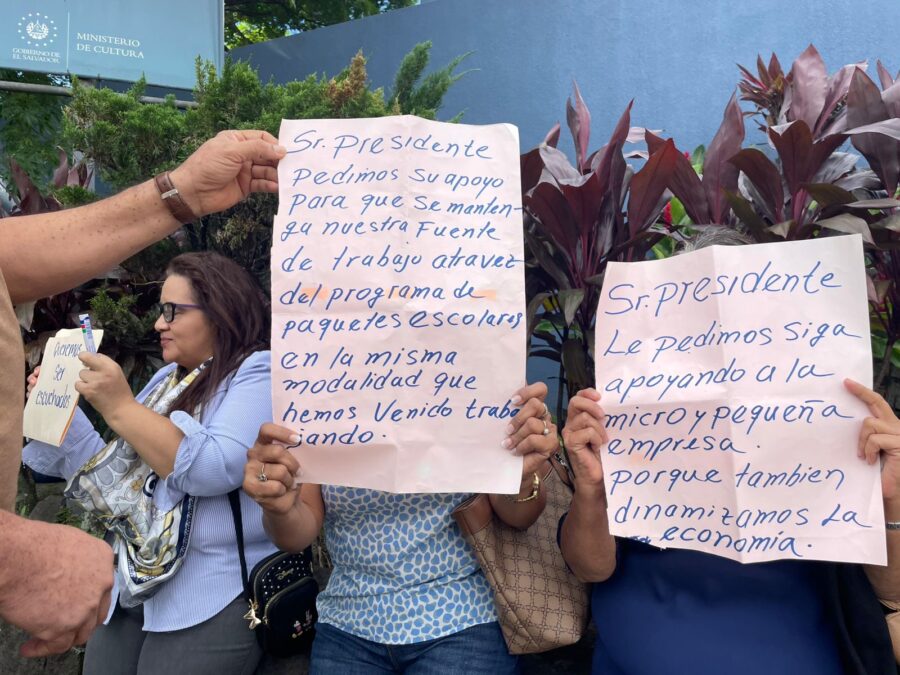 GOBIERNO DE
EL SALVADOR
MINISTERIO
DE CULTURA
Queremos
Ser
escuchados
Sr. Presidente
Pedimos su apoyo
Para que se manten-
ga nuestra Fuente
de trabajo atravez
del programa de
paquetes escolares
en la misma
modalidad que
hemos Venido traba
jando.
Sr. Presidente
Le pedimos siga
apoyando a la
micro y pequeña
empresa.
porque tambien
dinamizamos La
economía.